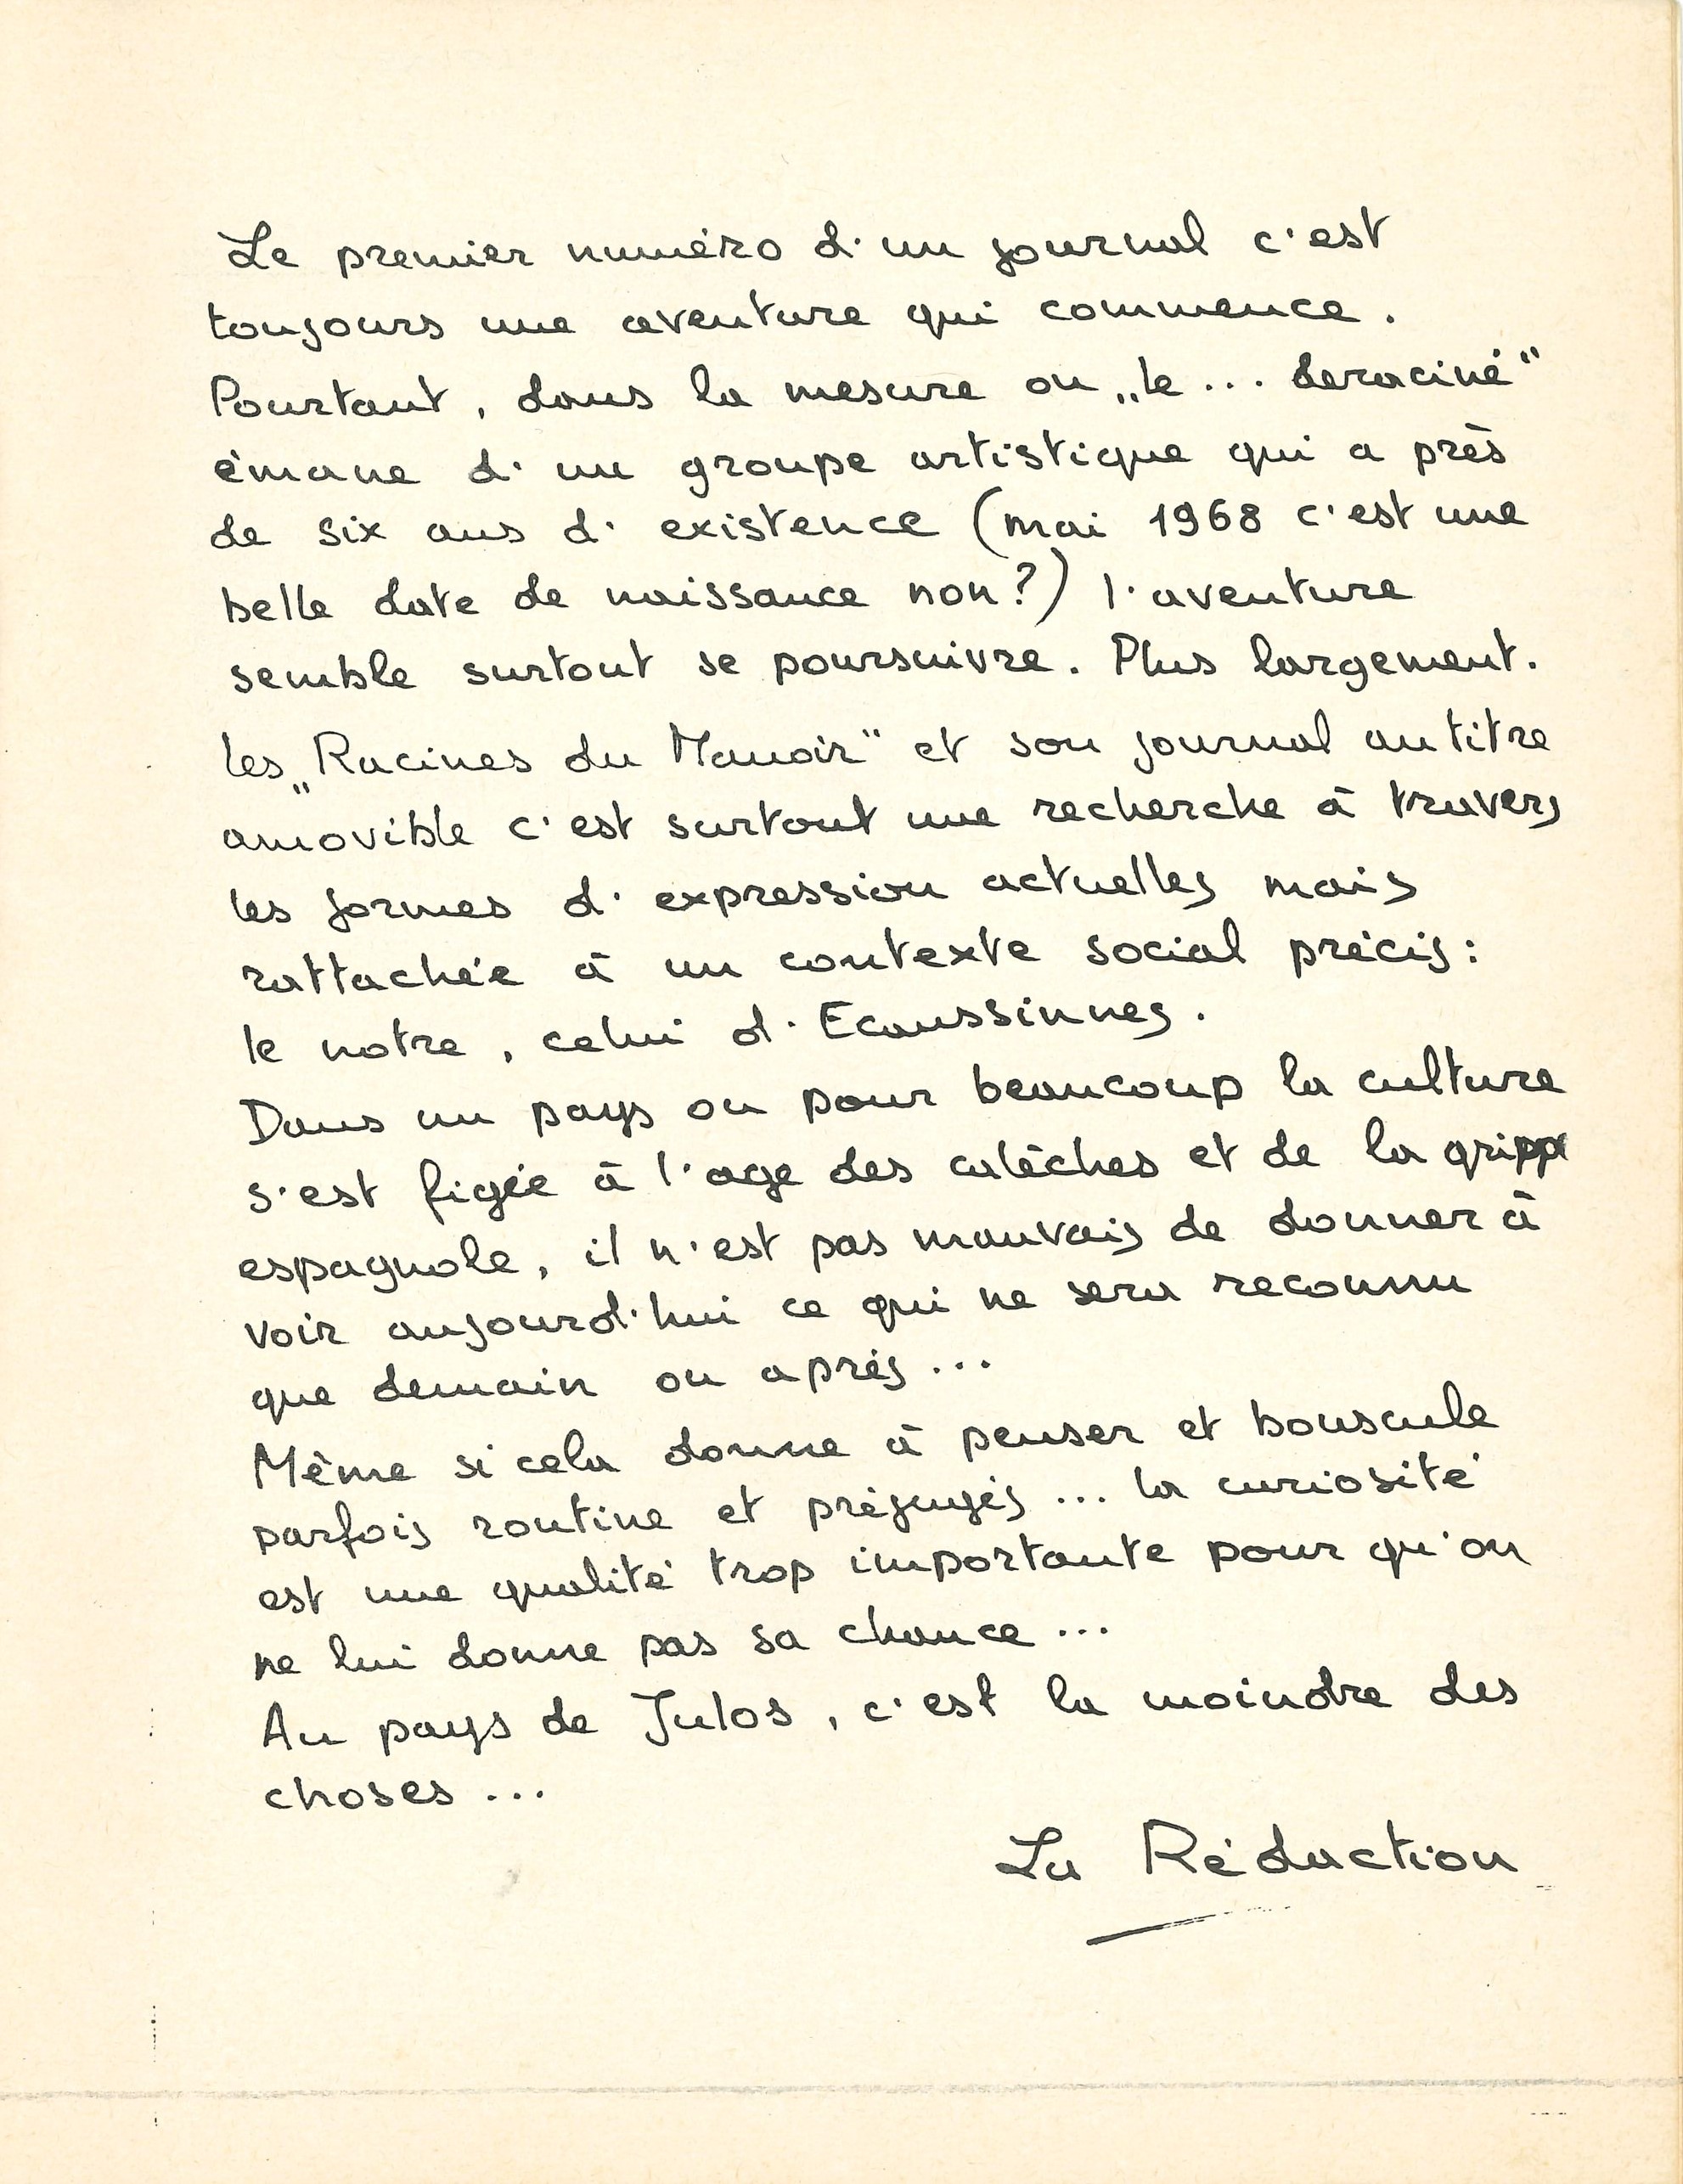 Le premier numéro d'un journal c'est
toujours une aventure qui commence.
Pourtant, dans la mesure ou „le ... deraciné"
émane d'un groupe artistique qui a près
de six ans d'existence (mai 1968 c'est une
belle date de naissance non?) l'aventure
semble surtout se poursuivre. Plus largement.
les „Racines du Manoir" et son journal au titre
amovible c'est surtout une recherche à travers
les formes d'expression actuelles mais
rattachée à un contexte social précis:
le notre, celui d'Ecaussinnes.
Dans un pays ou pour beaucoup la culture
s'est figée à l'age des calèches et de la grippe
espagnole, il n'est pas mauvais de donner à
voir aujourd'hui ce qui ne sera reconnu
que demain ou après...
Même si cela donne à penser et bouscule
parfois routine et préjugés... la curiosité
est une qualité trop importante pour qu'on
ne lui donne pas sa chance...
Au pays de Julos, c'est la moindre des
choses...
La Rédaction